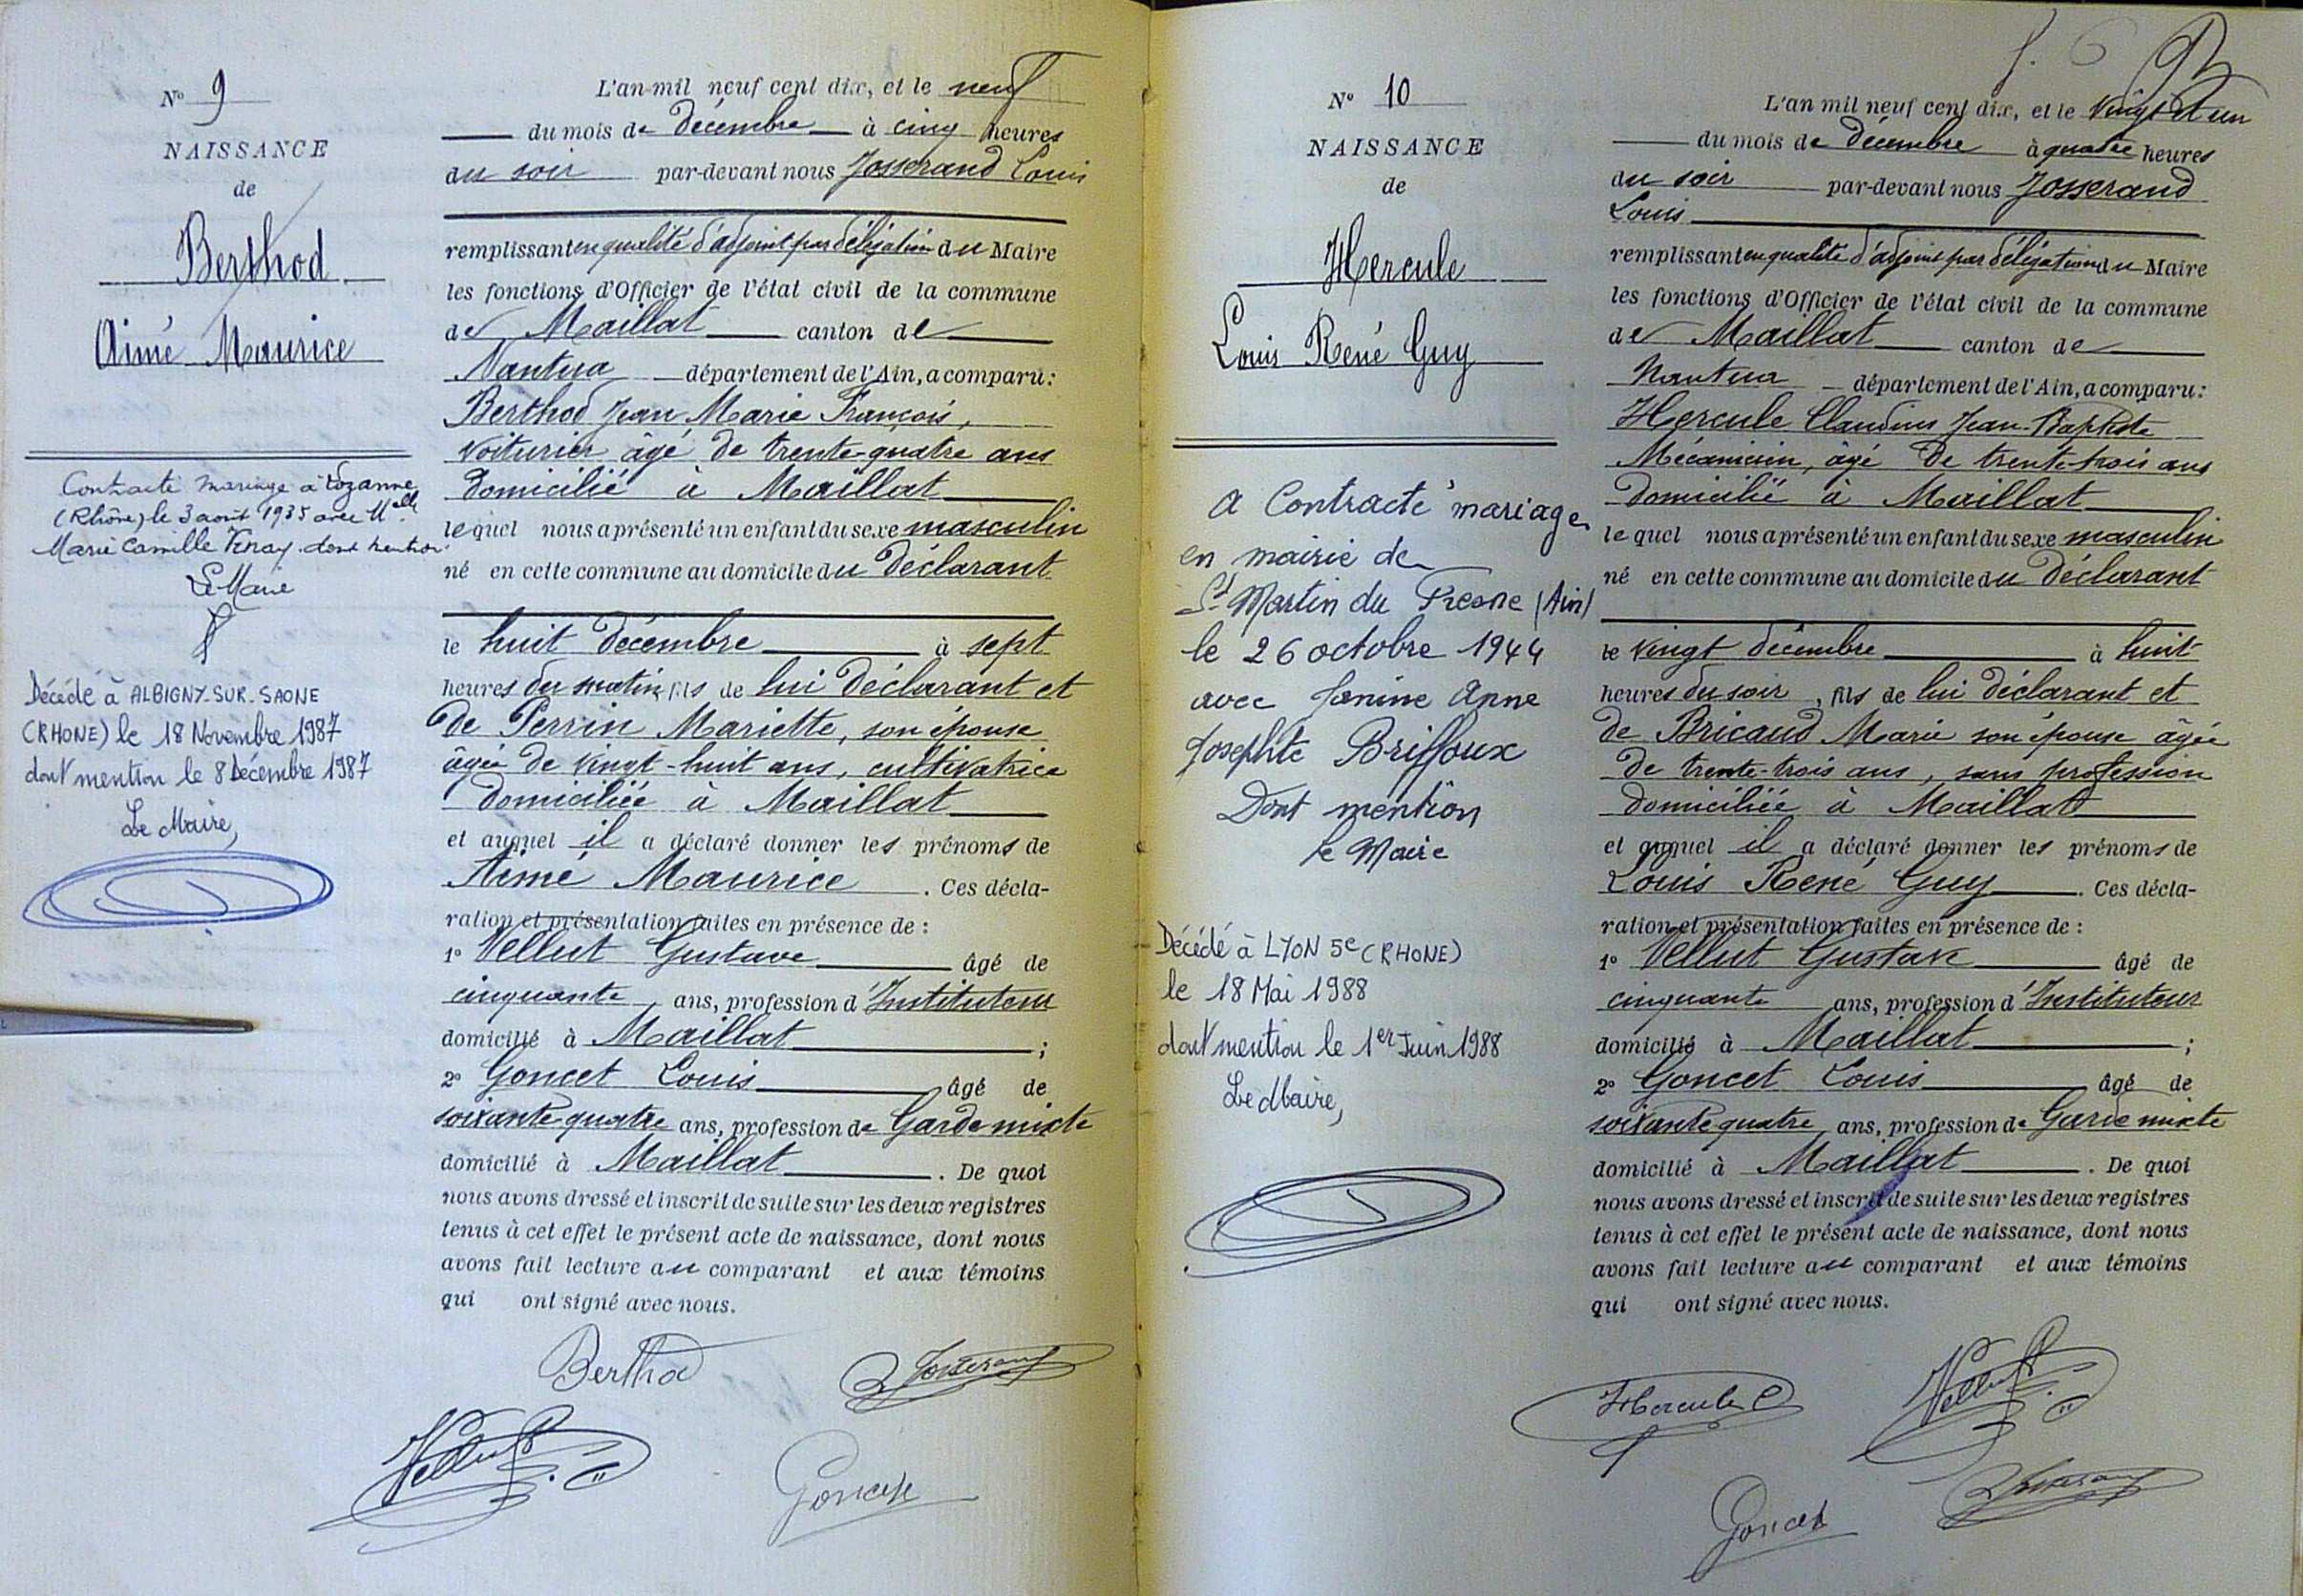 N° 9
NAISSANCE
de
Berthod
Aimé Maurice
Contracté mariage à Lozanne
(Rhône) le 3 août 1935 avec Melle
Marie Camille Venay. dont mention
Le Maire
Décédé à ALBIGNY-SUR-SAONE
(RHONE) le 18 Novembre 1987
dont mention le 8 Décembre 1987
Le Maire,
L'an mil neuf cent dix, et le neuf
du mois de décembre à cinq heures
du soir par-devant nous Josserand Louis
remplissant en qualité d'adjoint par délégation du Maire
les fonctions d'Officier de l'état civil de la commune
de Maillat canton de
Nantua département de l'Ain, a comparu :
Berthod Jean Marie François,
voiturier âgé de trente-quatre ans
domicilié à Maillat
lequel nous a présenté un enfant du sexe masculin
né en cette commune au domicile du déclarant
le huit décembre à sept
heures du matin, fils de lui déclarant et
de Perrin Mariette, son épouse
âgée de vingt-huit ans, cultivatrice
domiciliée à Maillat
et auquel il a déclaré donner les prénoms de
Aimé Maurice. Ces décla-
ration et présentation faites en présence de :
1° Vellut Gustave âgé de
cinquante ans, profession d'Instituteur
domicilié à Maillat ;
2° Goncet Louis âgé de
soixante-quatre ans, profession de Garde mixte
domicilié à Maillat. De quoi
nous avons dressé et inscrit de suite sur les deux registres
tenus à cet effet le présent acte de naissance, dont nous
avons fait lecture au comparant et aux témoins
qui ont signé avec nous.
Berthod Josserand
Vellut
Goncet
N° 10
NAISSANCE
de
Hercule
Louis René Guy
A Contracté mariage
en mairie de
St Martin du Fresne (Ain)
le 26 octobre 1944
avec Janine Anne
Josephte Briffoux
Dont mention
Le Maire
Décédé à LYON 5e (RHONE)
le 18 Mai 1988
dont mention le 1er Juin 1988
Le Maire,
L'an mil neuf cent dix, et le vingt et un
du mois de décembre à quatre heures
du soir par-devant nous Josserand
Louis
remplissant en qualité d'adjoint par délégation du Maire
les fonctions d'Officier de l'état civil de la commune
de Maillat canton de
Nantua département de l'Ain, a comparu :
Hercule Claudius Jean-Baptiste
Mécanicien, âgé de trente-trois ans
domicilié à Maillat
lequel nous a présenté un enfant du sexe masculin
né en cette commune au domicile du déclarant
le vingt décembre à huit
heures du soir, fils de lui déclarant et
de Bricaud Marie son épouse âgée
de trente-trois ans, sans profession
domiciliée à Maillat
et auquel il a déclaré donner les prénoms de
Louis René Guy. Ces décla-
ration et présentation faites en présence de :
1° Vellut Gustave âgé de
cinquante ans, profession d'Instituteur
domicilié à Maillat ;
2° Goncet Louis âgé de
soixante quatre ans, profession de Garde mixte
domicilié à Maillat. De quoi
nous avons dressé et inscrit de suite sur les deux registres
tenus à cet effet le présent acte de naissance, dont nous
avons fait lecture au comparant et aux témoins
qui ont signé avec nous.
Hercule C Vellut
Goncet Josserand